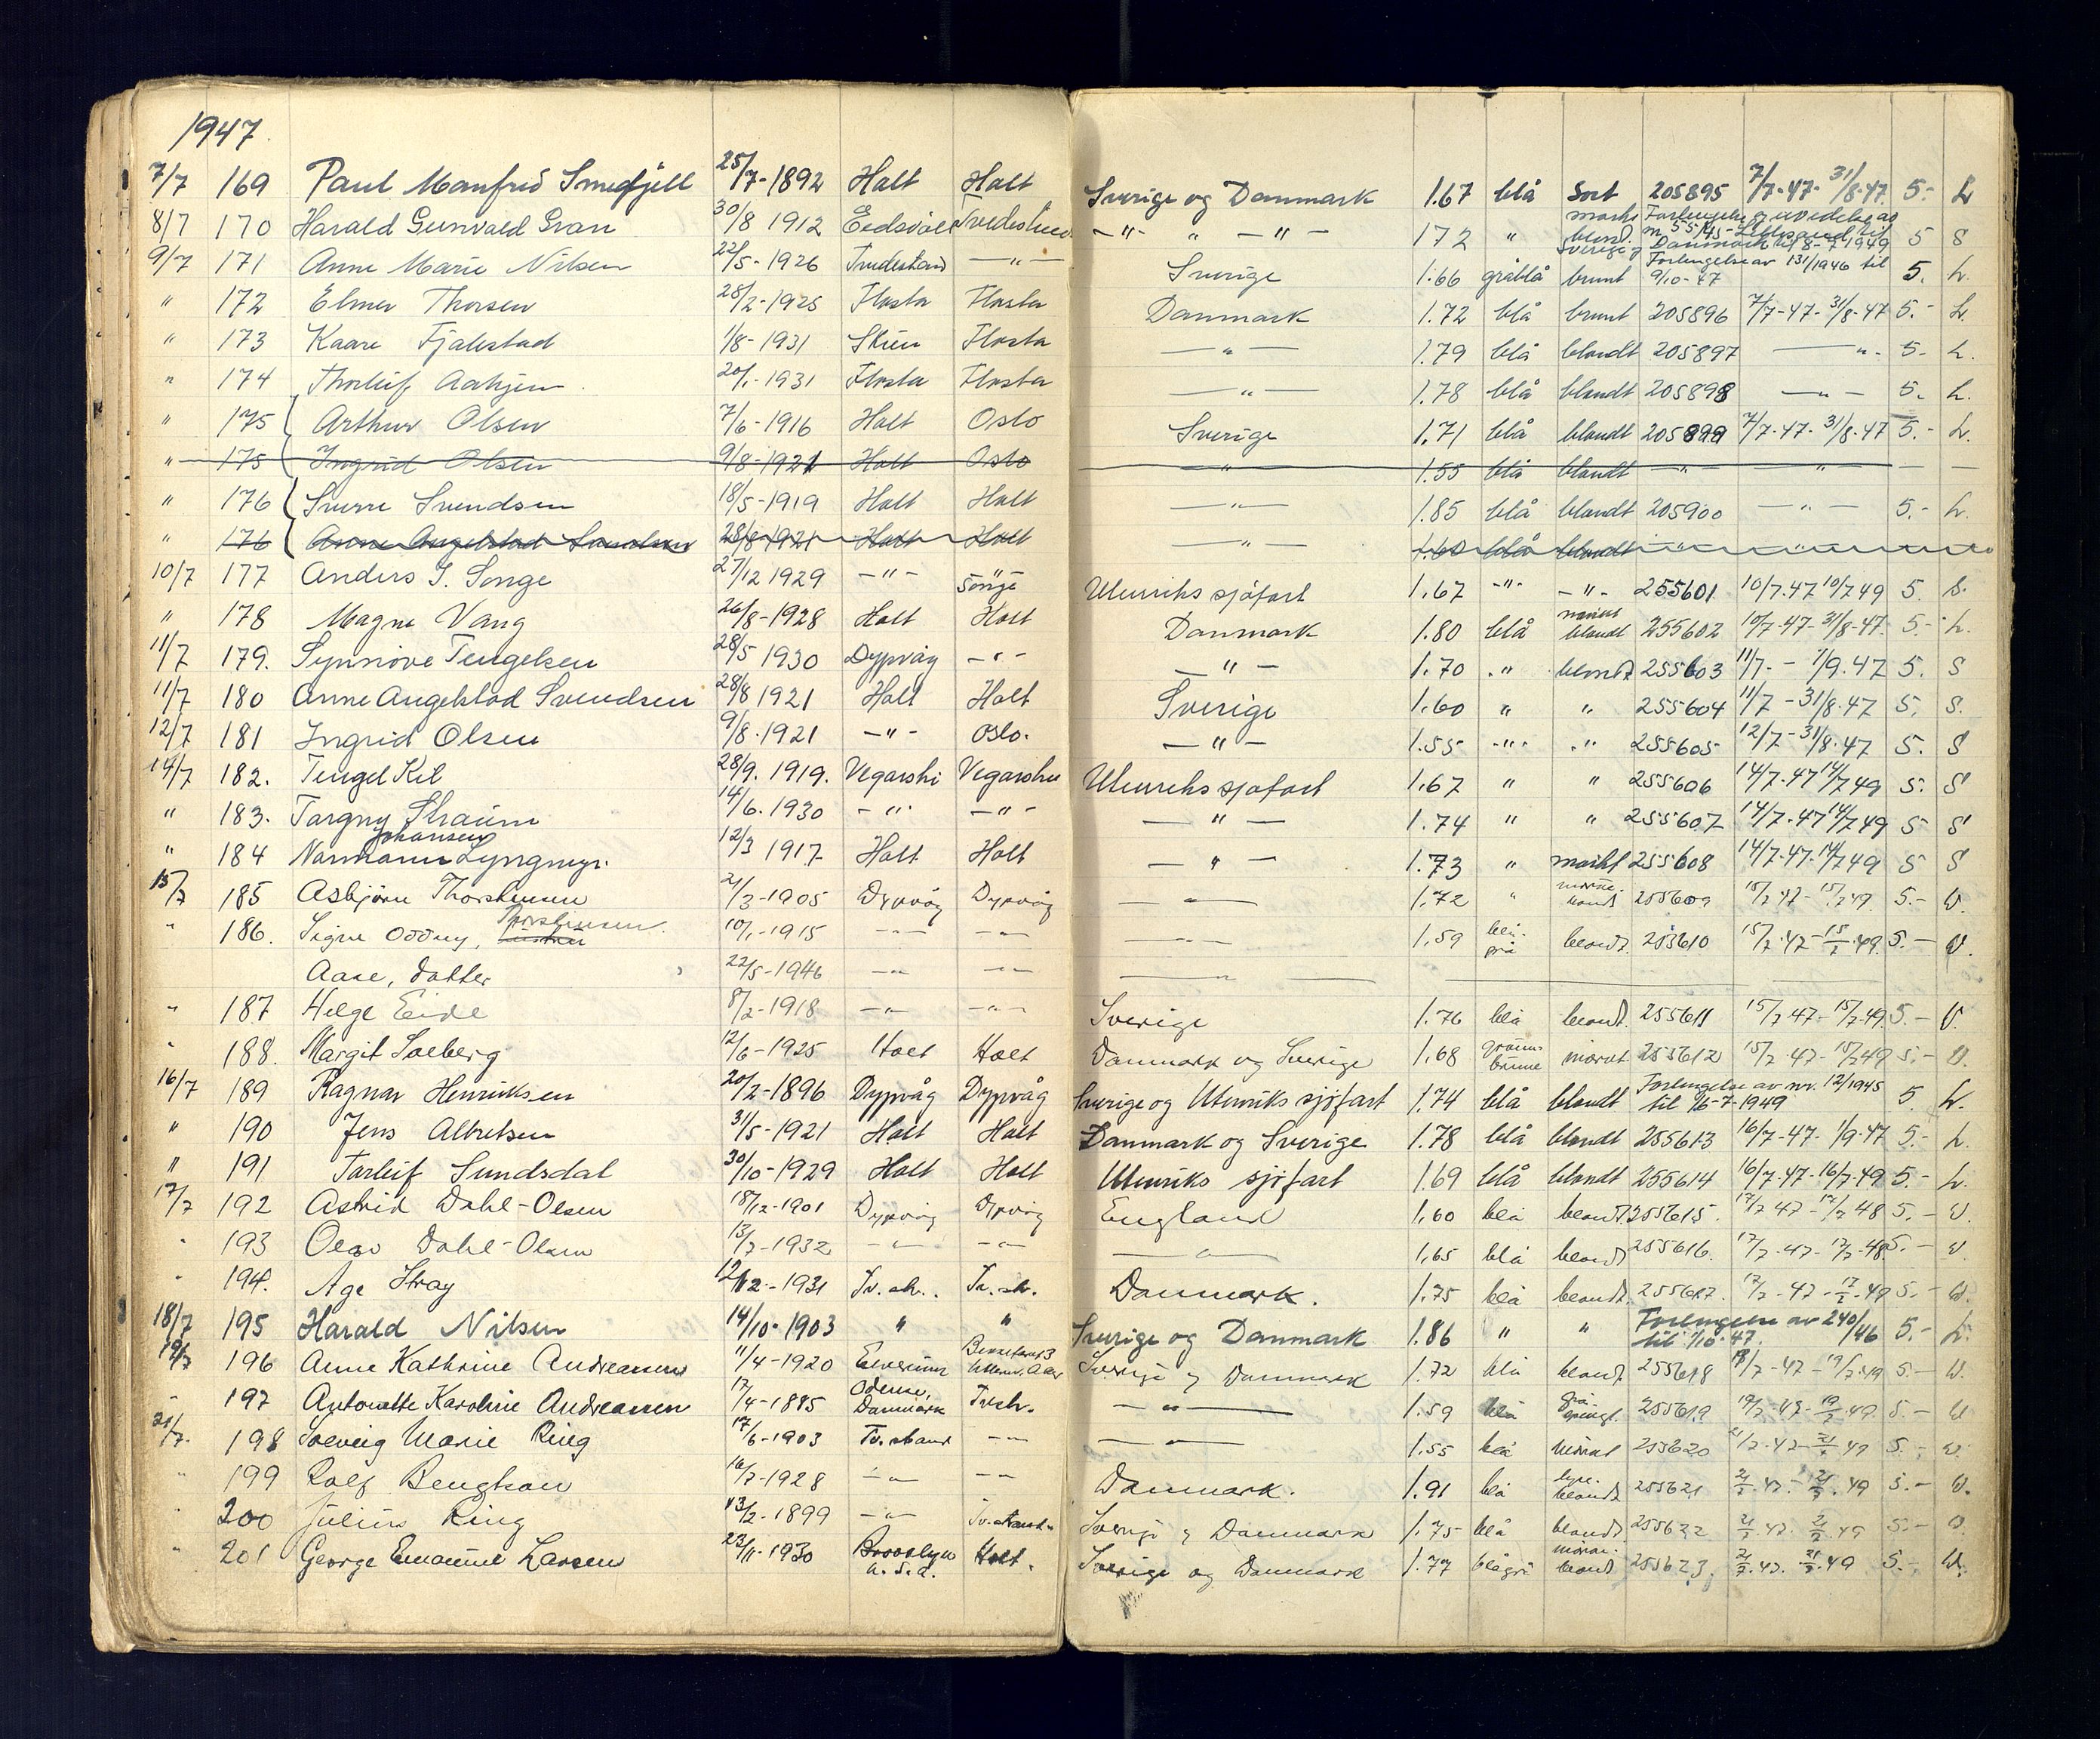 1947.
7/7 169 Paul Manfred Smedfjell 25/7-1892 Holt Holt Sverige og Danmark 1.67 blå Sort 205895 7/7-47- 31/8-47 5.- L
8/7 170 Harald Gunvald Gran 30/8 1912 Eidsvoll Tvedestrand -"- " -"- 172 " mørkt blond. Forlengelse og utvidelse av Lillesand til Sverige og Danmark til 8-7 1949 5 S
9/7 171 Anne Marie Nilsen 22/5-1926 Tvedestrand -"- Sverige 1.66 gråblå brunt Forlengelse av 131/1946 til 9/10-47 5. L.
" 172 Elmer Thorsen 28/2-1925 Flosta Flosta Danmark 1.72 blå brunt 205896 7/7-47- 31/8-47 5.- L.
" 173 Kaare Fjalestad 1/8-1931 Skien Flosta -"- 1.79 blå blondt 205897 -"- 5.- L.
" 174 Thorleif 20/1-1931 Flosta Flosta -"- 1.78 blå blondt 205898 -"- 5.- L.
" 175 Arthur Olsen 7/6-1916 Holt Oslo Sverige 1.71 blå blondt 205899 7/7-47- 31/8-47 5.- L.
" 175 Ingrid Olsen 9/8-1921 Holt Oslo -"- 1.55 blå blondt " "
" 176 Sverre Svendsen 18/5-1919 Holt Holt -"- 1.85 blå blondt 205900 -"- 5.- L.
" 176 Anne Angelstad Svendsen 28/8-1921 Holt Holt -"- 1.60 blå blondt " "
10/7 177 Anders J. Songe 27/12 1929 -"- " Songe Utenriks sjøfart 1.67 -"- -"- 255601 10/7.47 10/7 49 5. S.
" 178 Magne Vang 26/8-1928 Holt Holt Danmark 1.80 blå mørkt blondt 255602 10/7-47- 31/8-47. 5.- L.
11/7 179. Synnöve Tengelsen 28/5 1930 Dypvåg -"- -"- 1.70 " blondt 255603 11/7. - 1/9.47 5. S
11/7 180 Anne Angelstad Svendsen 28/8 1921 Holt Holt Sverige 1.60 " " 255604 11/7 - 31/8.47 5. S.
12/7 181 Ingrid Olsen 9/8.1921 -"- Oslo. -"- 1.55 -"- " 255605 12/7 - 31/8.47 5. S
14/7 182. Tengel Kil 28/9. 1919. Vegårshi Vegårshei Utenriks sjøfart 1.67 " " 255606 14/7.47 14/7 49 5. S
" 183. Torgny Straum 14/6.1930 -"- -"- -"- 1.74 " " 255607 14/7.47 14/7 49 5 S
" 184 Normann Johansen Lyngmyr. 12/3 1917 Holt Holt -"- 1.73 " mørkt 255608 14/7.47. 14/7 49 5 S
15/7 185 Asbjørn Thorstensen 21/3-1905 Dypvåg Dypvåg -"- 1.72 " mørke. blond 255609 15/7 47- 15/7 49. 5.- W.
" 186. Signe Oddny, Thorstensen 10/1-1915 -"- -"- -"- 1.59 blå. grå blondt 255610 15/7.47- 15/7.49. 5.- W.
Aase, datter 22/5-1946 -"- -"- -"-
" 187 Helge Eide 8/2-1918 -"- -"- Sverige 1.76 blå blondt. 255611 15/7 47- 15/7 49 5.- W.
" 188. Margit Solberg 12/6-1925 Holt Holt Danmark og Sverige 1.68 grønn-brune mørkt 255612 15/7.47- 15/7 49 5.- W.
16/7 189 Ragnar Henriksen 20/2-1896 Dypvåg Dypvåg Sverige og Utenriks sjøfart 1.74 blå blondt Forlengelse av nr. 12/1945 til 16-7-1949 5. L.
" 190 Jens Albretsen 31/5-1921 Holt Holt Danmark og Sverige 1.78 blå blondt 255613 16/7-47- 1/9-47 5.- L.
" 191 Torleif Sundsdal 30/10-1929 Holt Holt Utenriks sjøfart 1.69 blå blondt 255614 16/7-47-16/7-49 5.- L.
17/7 192 Astrid Dahl-Olsen 18/12-1901 Dypvåg Dypvåg England 1.60 blå blondt. 255615. 17/7 47 - 17/7 48 5.- W.
" 193 Olav Dahl-Olsen 13/7-1932 -"- -"- -"- 1.65 blå blondt 255616. 17/7-47- 17/7-48. 5.- W
" 194. Age Stray 12/12-1931 Tv.str.. Tv.str. Danmark. 1.75 blå blondt. 255617. 17/7-47-17/7-49 5.- W.
18/7 195 Harald Nilsen 14/10-1903 " " Sverige og Danmark 1.86 " " Forlengelse av 240/46 til 1/10-47. 5.- L.
19/7 196 Anne Kathrine Andreassen 11/4-1920 Sverige og Danmark 1.72 blå blondt 255618 19/7-47-19/7-49 5.- W.
" 197 Antonette Karoline Andreassen 17/4-1885 Odense, Danmark Tvstr. -"- 1.59 blå grå-sprengt. 255619 19/7-47-19/7.49 5.- W
21/7. 198 Solveig Marie Ring 17/6-1903 Tv.strand -"- -"- 1.55 blå mörkt 255620 21/7.47-21/7 49 5.- W.
" 199 Rolf Bengtson 16/7-1928 -"- -"- Danmark. 1.91 blå lyse. blondt 255621 21/7.47.-21/7.49 5.- W.
" 200 Julius Ring 13/2-1899 -"- Tv.strand. Sverige og Danmark 1.75 blå blondt. 255622 21/7.47. 21/7.49 5.- W.
" 201 George Emanuel Larsen 22/11-1930 Brooklyn U.S.A. Holt. Sverige og Danmark 1.77 blågrå mörke. blond 255623. 21/7.47. 21/7.49 5.- W.